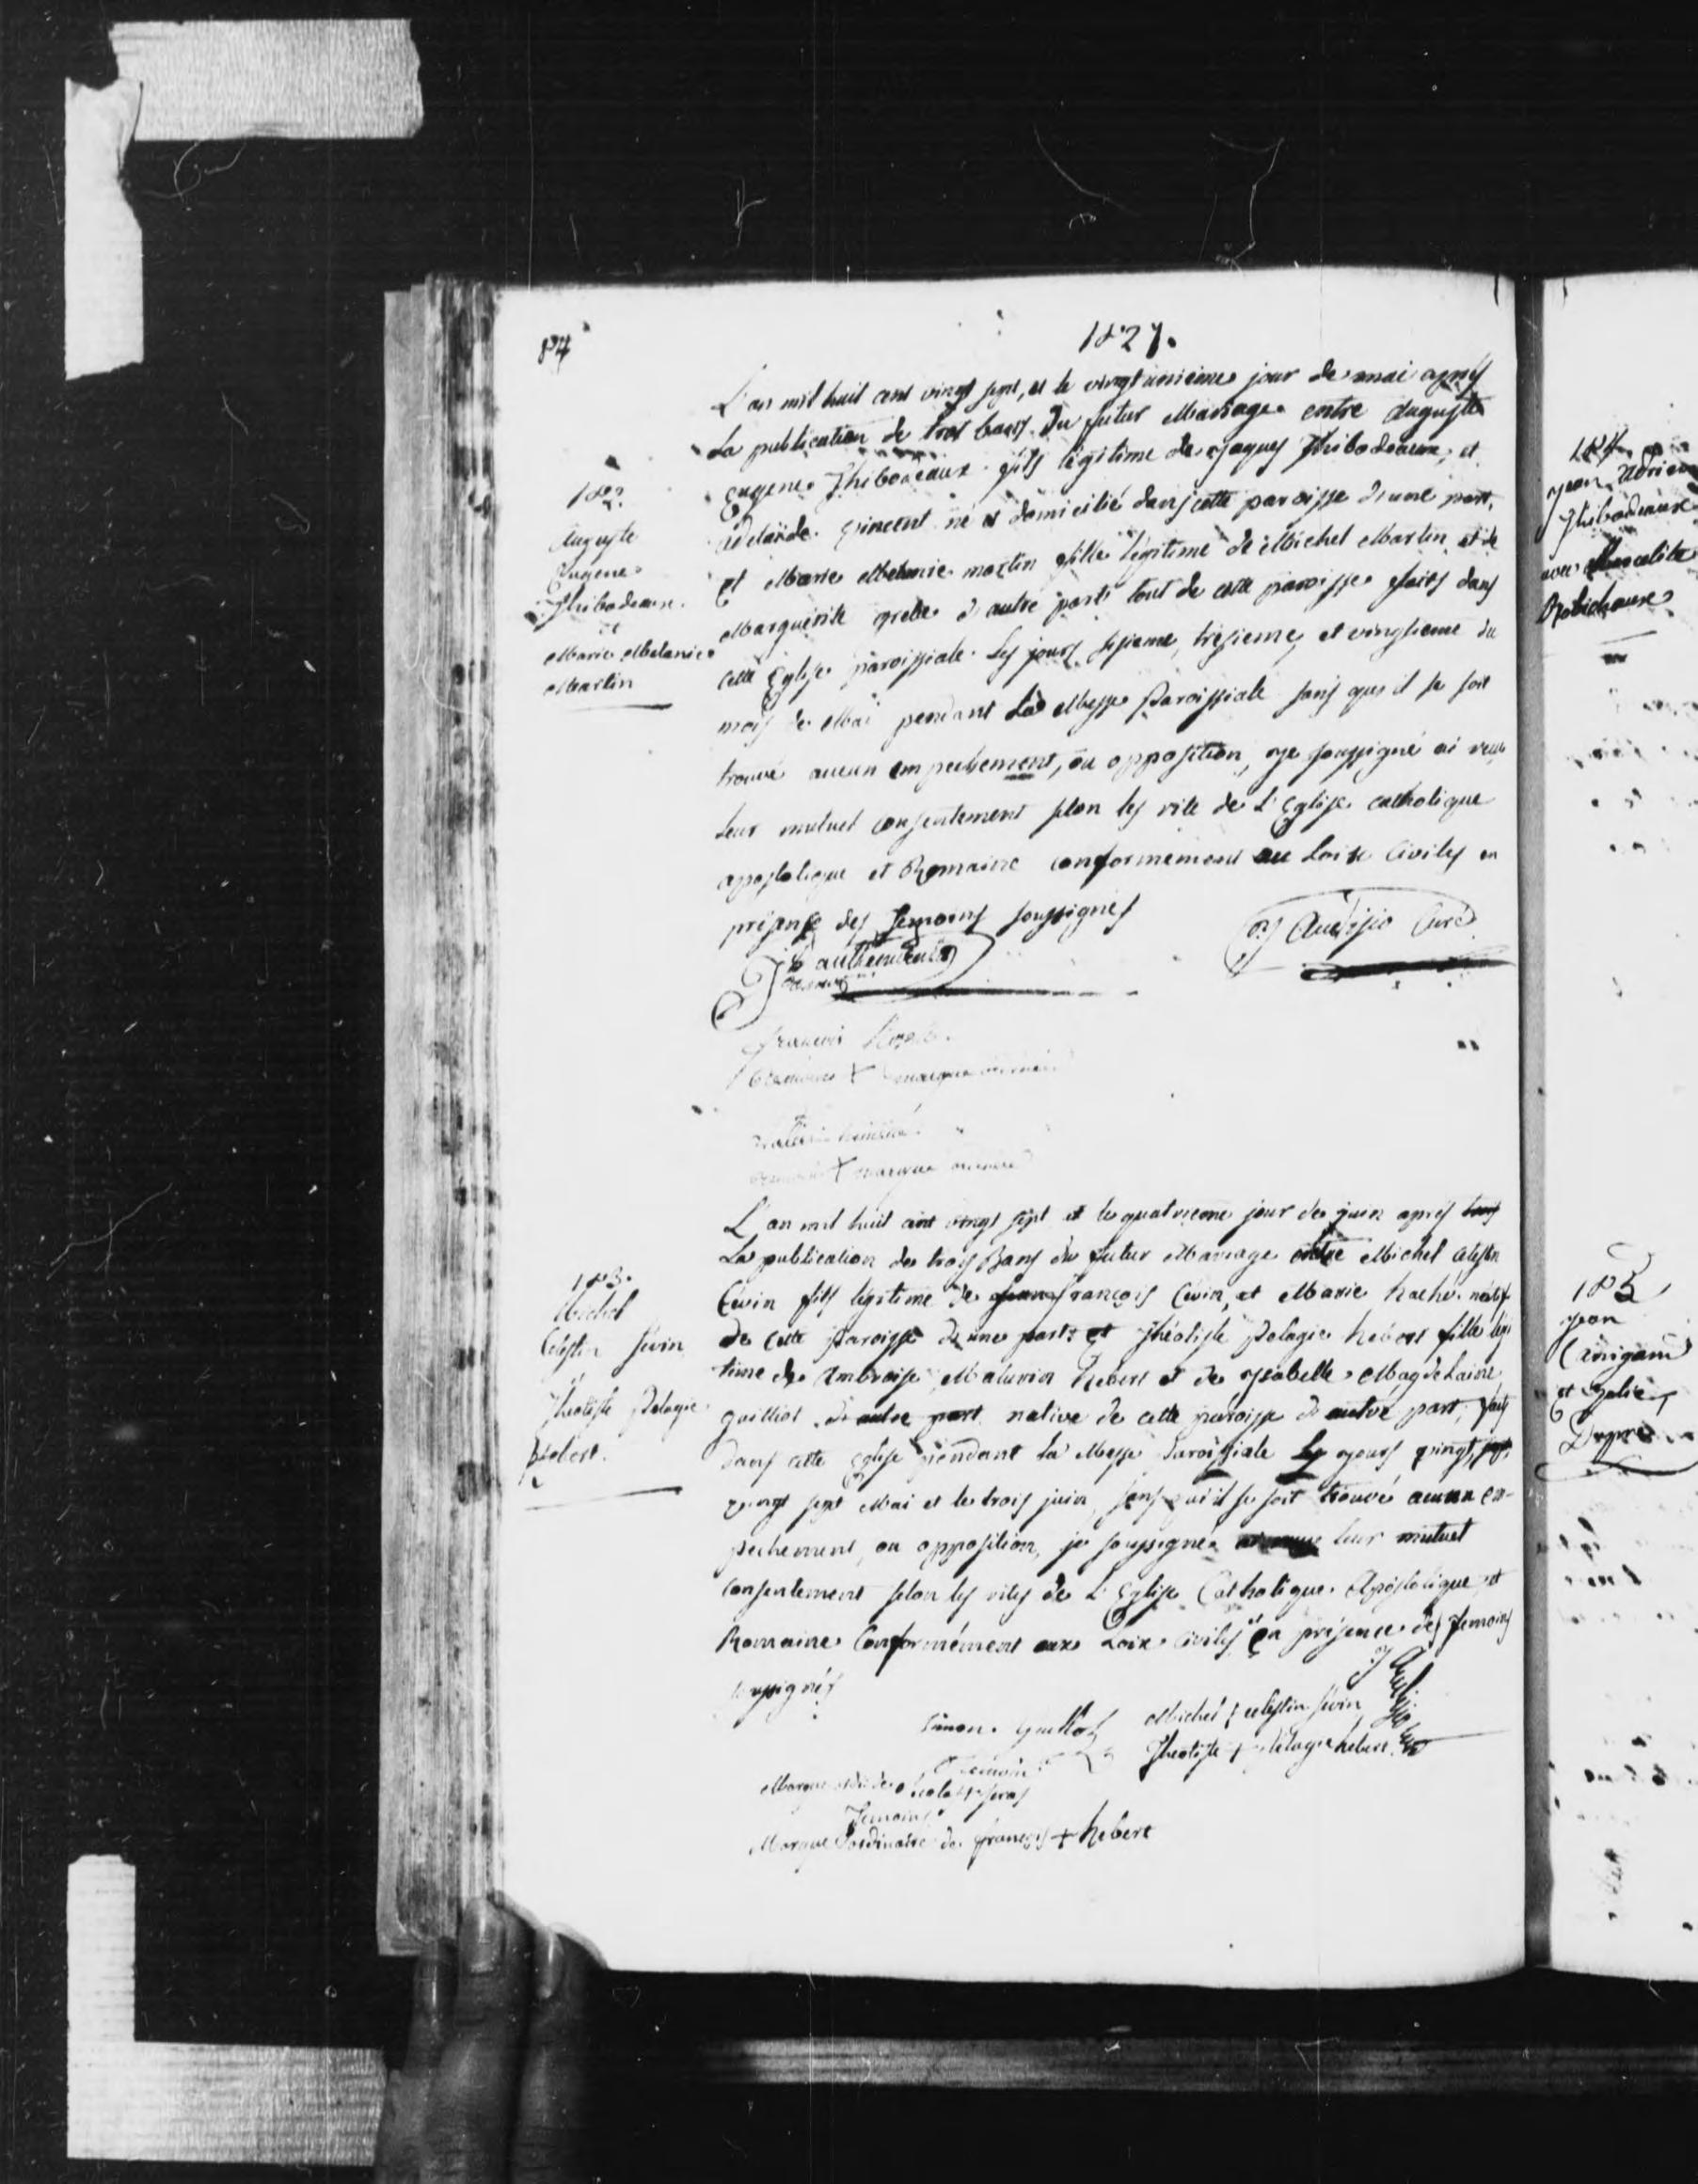 84
1827.
182
Auguste
Eugene
Thibodeaux
et
Marie Melanie
Martin
L'an mil huit cent vingt sept, et le vingt unieme jour de mai après
La publication de trois bans du futur Mariage entre Auguste
Eugene Thibodeaux fils légitime de Jaques Thibodeaux, et
Adelaïde Vincent né et domicilié dans cette paroisse d'une part,
et Marie Melanie martin fille légitime de Michel Martin et de
Marguerite d'autre part tout de cette paroisse faits dans
cette Eglise paroissiale Les jours sisieme, tresieme, et vingtieme du
mois de Mai pendant La Messe Paroissiale sans que il se soit
trouvé aucun empechement, ou opposition, je soussigné ai reçu
leur mutuel consentement selon les rite de L'Eglise catholique
apostolique et Romaine conformement au Loix Civiles en
présense des Temoins soussignés
Audisio Curé
francois
marque
marque
183.
Michel
Celestin Sevin
Theotiste Pelagie
Hebert.
L'an mil huit cent vingt sept et le quatrieme jour de juin après
La publication de trois Bans du futur Mariage entre Michel Celestin
Cevin fils légitime de francois Cevin, et Marie haché natif
de cette Paroisse d'une part et Théotiste Pelagie hebert fille légi
time de Ambroise Maturin hebert et de ysabelle Magdelaine
guilliot d'autre part native de cette paroisse d'autre part, faits
dans cette Eglise pendant la Messe Paroissiale Les jours vingt,
vingt sept Mai et le trois juin, sans qu'il se soit trouvé aucun em-
pechement, ou opposition, je soussigné leur mutuel
consentement selon les rites de L'Eglise Catholique Apostolique et
Romaine Conformément aux Loix civiles en présence des Temoins
soussignés
Simon guillot
Temoin
Michel + celestin sevin
Theotiste + Pelagie hebert
Marque
Temoins
Marque ordinaire de francois + hebert
184
jean Adrien
Thibodeaux
avec Marcelite
Robichaux
185
jean
et
Dupré